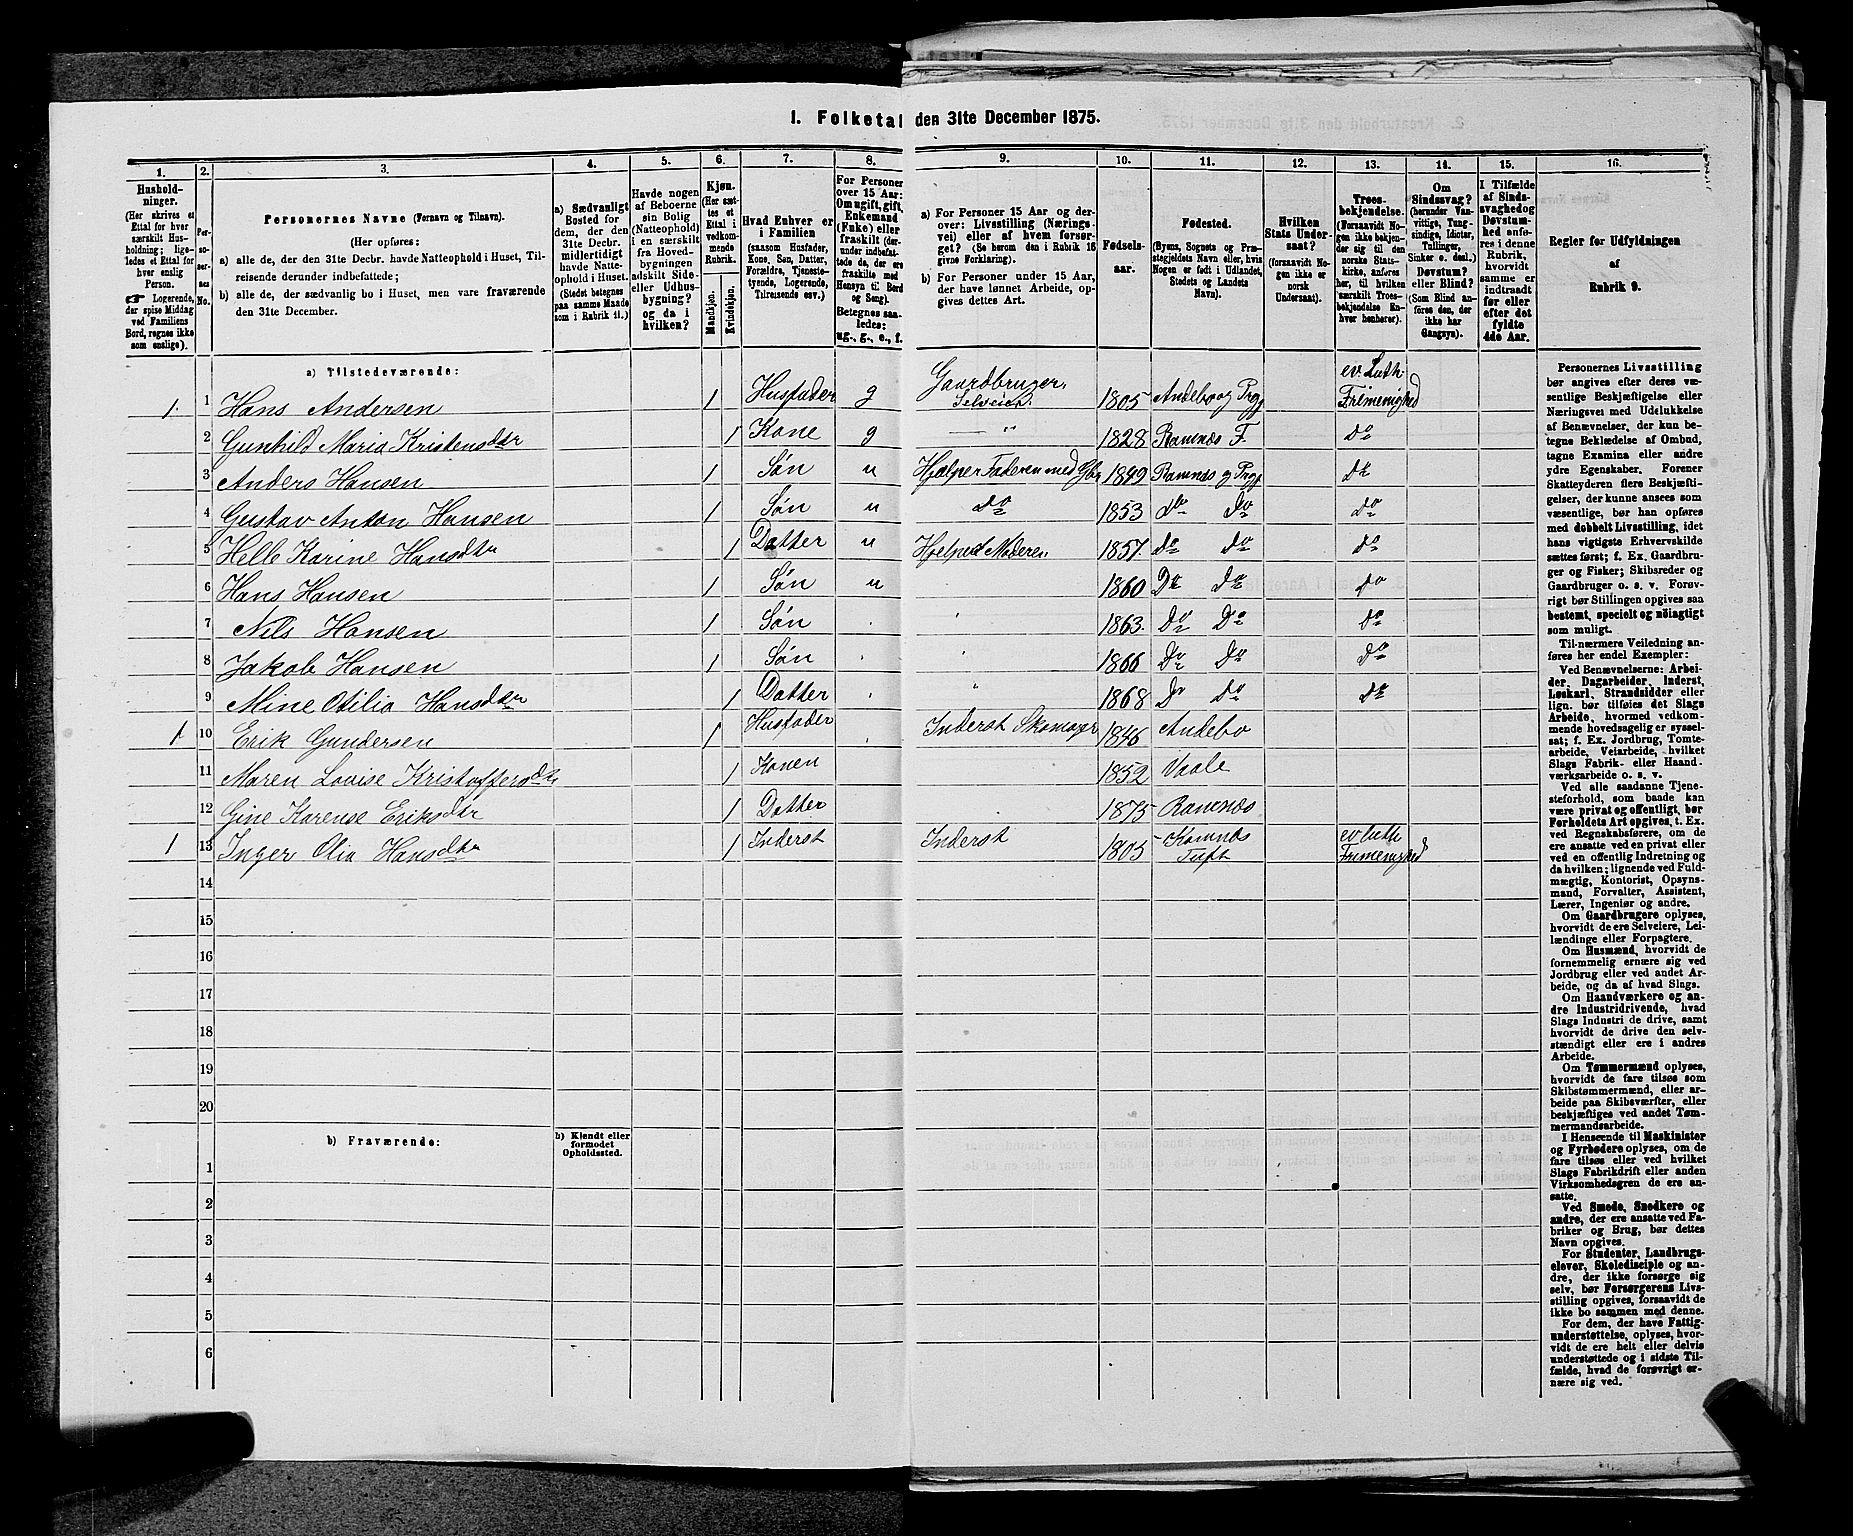 1. Folketal den 31te December 1875.
1. 2. 3. 4. 5. 6. 7. 8. 9. 10. 11. 12. 13. 14. 15. 16.
Hushold-
ninger.
(Her skrives et
Ettal for hver
særskilt Hus-
holdning; lige-
ledes et Ettal for
hver enslig
Person.
☞ Logerende,
der spise Middag
ved Familiens
Bord, regnes ikke
som enslige).
Per-
so-
ner-
nes
No.
Personernes Navne (Fornavn og Tilnavn).
(Her opføres:
a) alle de, der den 31te Decbr. havde Natteophold i Huset, Til-
reisende derunder indbefattede;
b) alle de, der sædvanlig bo i Huset, men vare fraværende
den 31te December.
a) Sædvanligt
Bosted for
dem, der den
31te Decbr.
midlertidigt
havde Natte-
ophold i Huset.
(Stedet betegnes
paa samme Maade
som i Rubrik 11.)
Havde nogen
af Beboerne
sin Bolig
(Natteophold)
i en særskilt
fra Hoved-
bygningen
adskilt Side-
eller Udhus-
bygning?
og da i
hvilken?
Kjøn.
(Her sæt-
tes et
Ettal i
vedkom-
mende
Rubrik.
Mandkjøn.
Kvindekjøn.
Hvad Enhver er
i Familien
(saasom Husfader,
Kone, Søn, Datter,
Forældre, Tjeneste-
tyende, Logerende,
Tilreisende osv.)
For Personer
over 15 Aar:
Om ugift, gift,
Enkemand
(Enke) eller
fraskilt (der-
under indbefat-
tede de, der ere
fraskilte med
Hensyn til Bord
og Seng).
Betegnes saa-
ledes:
ug., g., e., f.
a) For Personer 15 Aar og der-
over: Livsstilling (Nærings-
vei) eller af hvem forsør-
get? (Se herom den i Rubrik 16
givne Forklaring).
b) For Personer under 15 Aar,
der have lønnet Arbeide, op-
gives dettes Art.
Fødsels-
aar.
Fødested.
(Byens, Sognets og Præ-
stegjeldets Navn eller, hvis
Nogen er født i Udlandet,
Stedets og Landets
Navn).
Hvilken
Stats Under-
saat?
(forsaavidt No-
gen ikke er
norsk
Undersaat).
Troes-
bekjendelse.
(Forsaavidt No-
gen ikke bekjen-
der sig til den
norske Stats-
kirke, anføres
her, til hvilken
særskilt Troes-
bekjendelse En-
hver henhører).
Om
Sindssvag?
(herunder Van-
vittige, Tung-
sindige, Idioter,
Tullinger,
Sinker o. desl.)
Døvstum?
eller Blind?
(Som Blind an-
føres den, der
ikke har
Gangsyn).
I Tilfælde
af Sinds-
svaghed og
Døvstum-
hed anfø-
res i denne
Rubrik,
hvorvidt
samme er
indtraadt
før eller
efter det
fyldte
4de Aar.
Regler for Udfyldningen
af
Rubrik 9.
a) Tilstedeværende:
1. 1 Hans Andersen 1 Husfader g Gaardbruger, Selveier. 1805 Andebo og Prgj ev. Luth: Frimenighed
2 Gunhild Maria Kristensdtr 1 Kone g — " 1828 Ramnæs F. do
3 Anders Hansen 1 Søn u Hjælper Faderen med Gbr 1849 Ramnæs og Prgj do
4 Gustav Anton Hansen 1 Søn u do 1853 do do do
5 Helle Karine Hansdtr 1 Datter u Hjelper Moderen 1857 do do do
6 Hans Hansen 1 Søn u 1860 Do do do
7 Nils Hansen 1 Søn 1863. Do Do do
8 Jakob Hansen 1 Søn 1866 Do Do do
9 Mine Otilia Hansdtr 1 Datter 1868 Do do do
1 10 Erik Gundersen 1 Husfader Inderst Skomager 1846 Andebo
11 Maren Lovise Kristoffersdtr 1 Konen 1852 Vaale
12 Gine Karense Eriksdtr 1 Datter 1875 Ramnæs
1 13 Inger Olia Hansdtr 1 Inderst Inderst 1805 Ramnæs Tuft ev luth Frimenighed
14
15
16
17
18
19
20
b) Fraværende:
b) Kjendt eller
formodet
Opholdssted.
1
2
3
4
5
6
Personernes Livsstilling
bør angives efter deres væ-
sentlige Beskjæftigelse eller
Næringsvei med Udelukkelse
af Benævnelser, der kun be-
tegne Beklædelse af Ombud,
tagne Examina eller andre
ydre Egenskaber. Forener
Skatteyderen flere Beskjæfti-
gelser, der kunne ansees som
væsentlige, bør han opføres
med dobbelt Livsstilling, idet
hans vigtigste Erhvervskilde
sættes først; f. Ex. Gaardbru-
ger og Fisker; Skibsreder og
Gaardbruger o. s. v. Forøv-
rigt bør Stillingen opgives saa
bestemt, specielt og nøiagtigt
som muligt.
Til nærmere Veiledning an-
føres her endel Exempler:
Ved Benævnelserne: Arbei-
der, Dagarbeider, Inderst,
Løskarl, Strandsidder eller
lign. bør tilføies det Slags
Arbeide, hvormed vedkom-
mende hovedsagelig er syssel-
sat; f. Ex. Jordbrug, Tomte-
arbeide, Veiarbeide, hvilket
Slags Fabrik- eller Haand-
værksarbeide o. s. v.
Ved alle saadanne Tjene-
steforhold, som baade kan
være privat og offentligt, bør
Forholdets Art opgives, t. Ex.
ved Regnskabsførere, om de
ere ansatte ved en privat eller
ved en offentlig Indretning og
da hvilken; lignende ved Fuld-
mægtig, Kontorist, Opsyns-
mand, Forvalter, Assistent,
Lærer, Ingeniør og andre.
Om Gaardbrugere oplyses,
hvorvidt de ere Selveiere, Lei-
lændinge eller Forpagtere.
Om Husmænd, hvorvidt de
fornemmelig ernære sig ved
Jordbrug eller ved andet Ar-
beide, og da af hvad Slags.
Om Haandværkere og an-
dre Industridrivende, hvad
Slags Industri de drive, samt
hvorvidt de drive den selv-
stændigt eller ere i andres
Arbeide.
Om Tømmermænd oplyses,
hvorvidt de fare tilsøs som
Skibstømmermænd, eller ar-
beide paa Skibsværfter, eller
beskjæftiges ved andet Tøm-
mermandsarbeide.
I Henseende til Maskinister
og Fyrbødere oplyses, om de
fare tilsøs eller ved hvilket
Slags Fabrikdrift eller anden
Virksomhedsgren de ere an-
satte.
Ved Smede, Snedkere og
andre, der ere ansatte ved Fa-
briker og Brug, bør dettes
Navn opgives.
For Studenter, Landbrugs-
elever, Skoledisciple og an-
dre, der ikke forsørge sig
selv, bør Forsørgerens Livs-
stilling opgives, forsaavidt de
ikke bo sammen med denne.
For dem, der have Fattig-
understøttelse, oplyses, hvor-
vidt de ere helt eller delvis
understøttede og i sidste Til-
fælde, hvad de forøvrigt er-
nære sig ved.